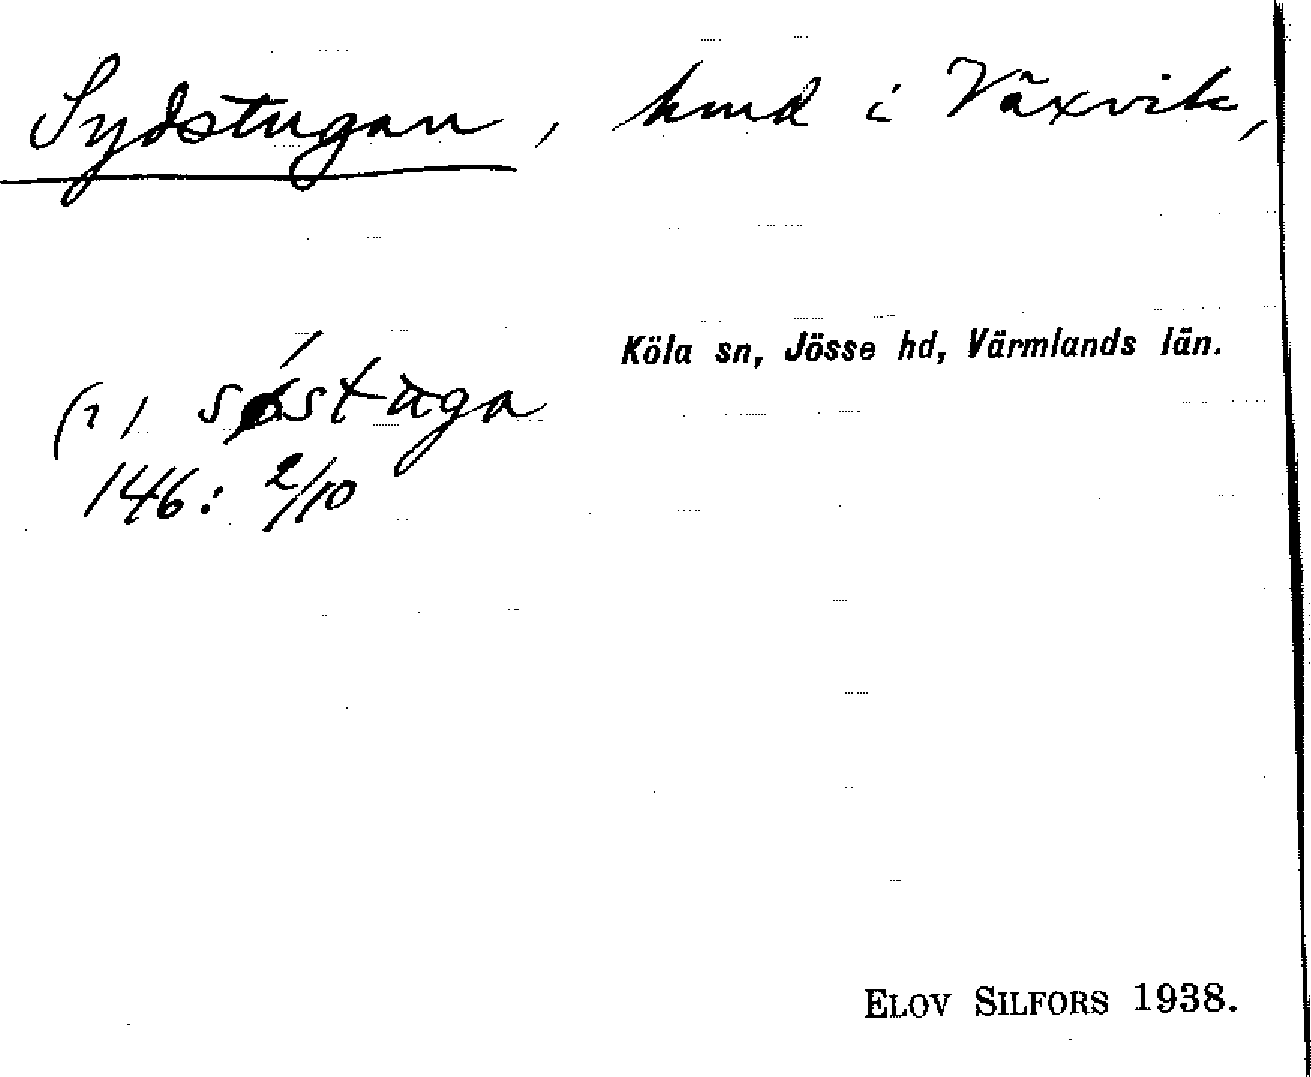 Sydstugan, hmd i Växvik,
Köla sn, Jösse hd, Värmlands län.
(?) søstuga
146: 2/10
ELOV SILFORS 1938.